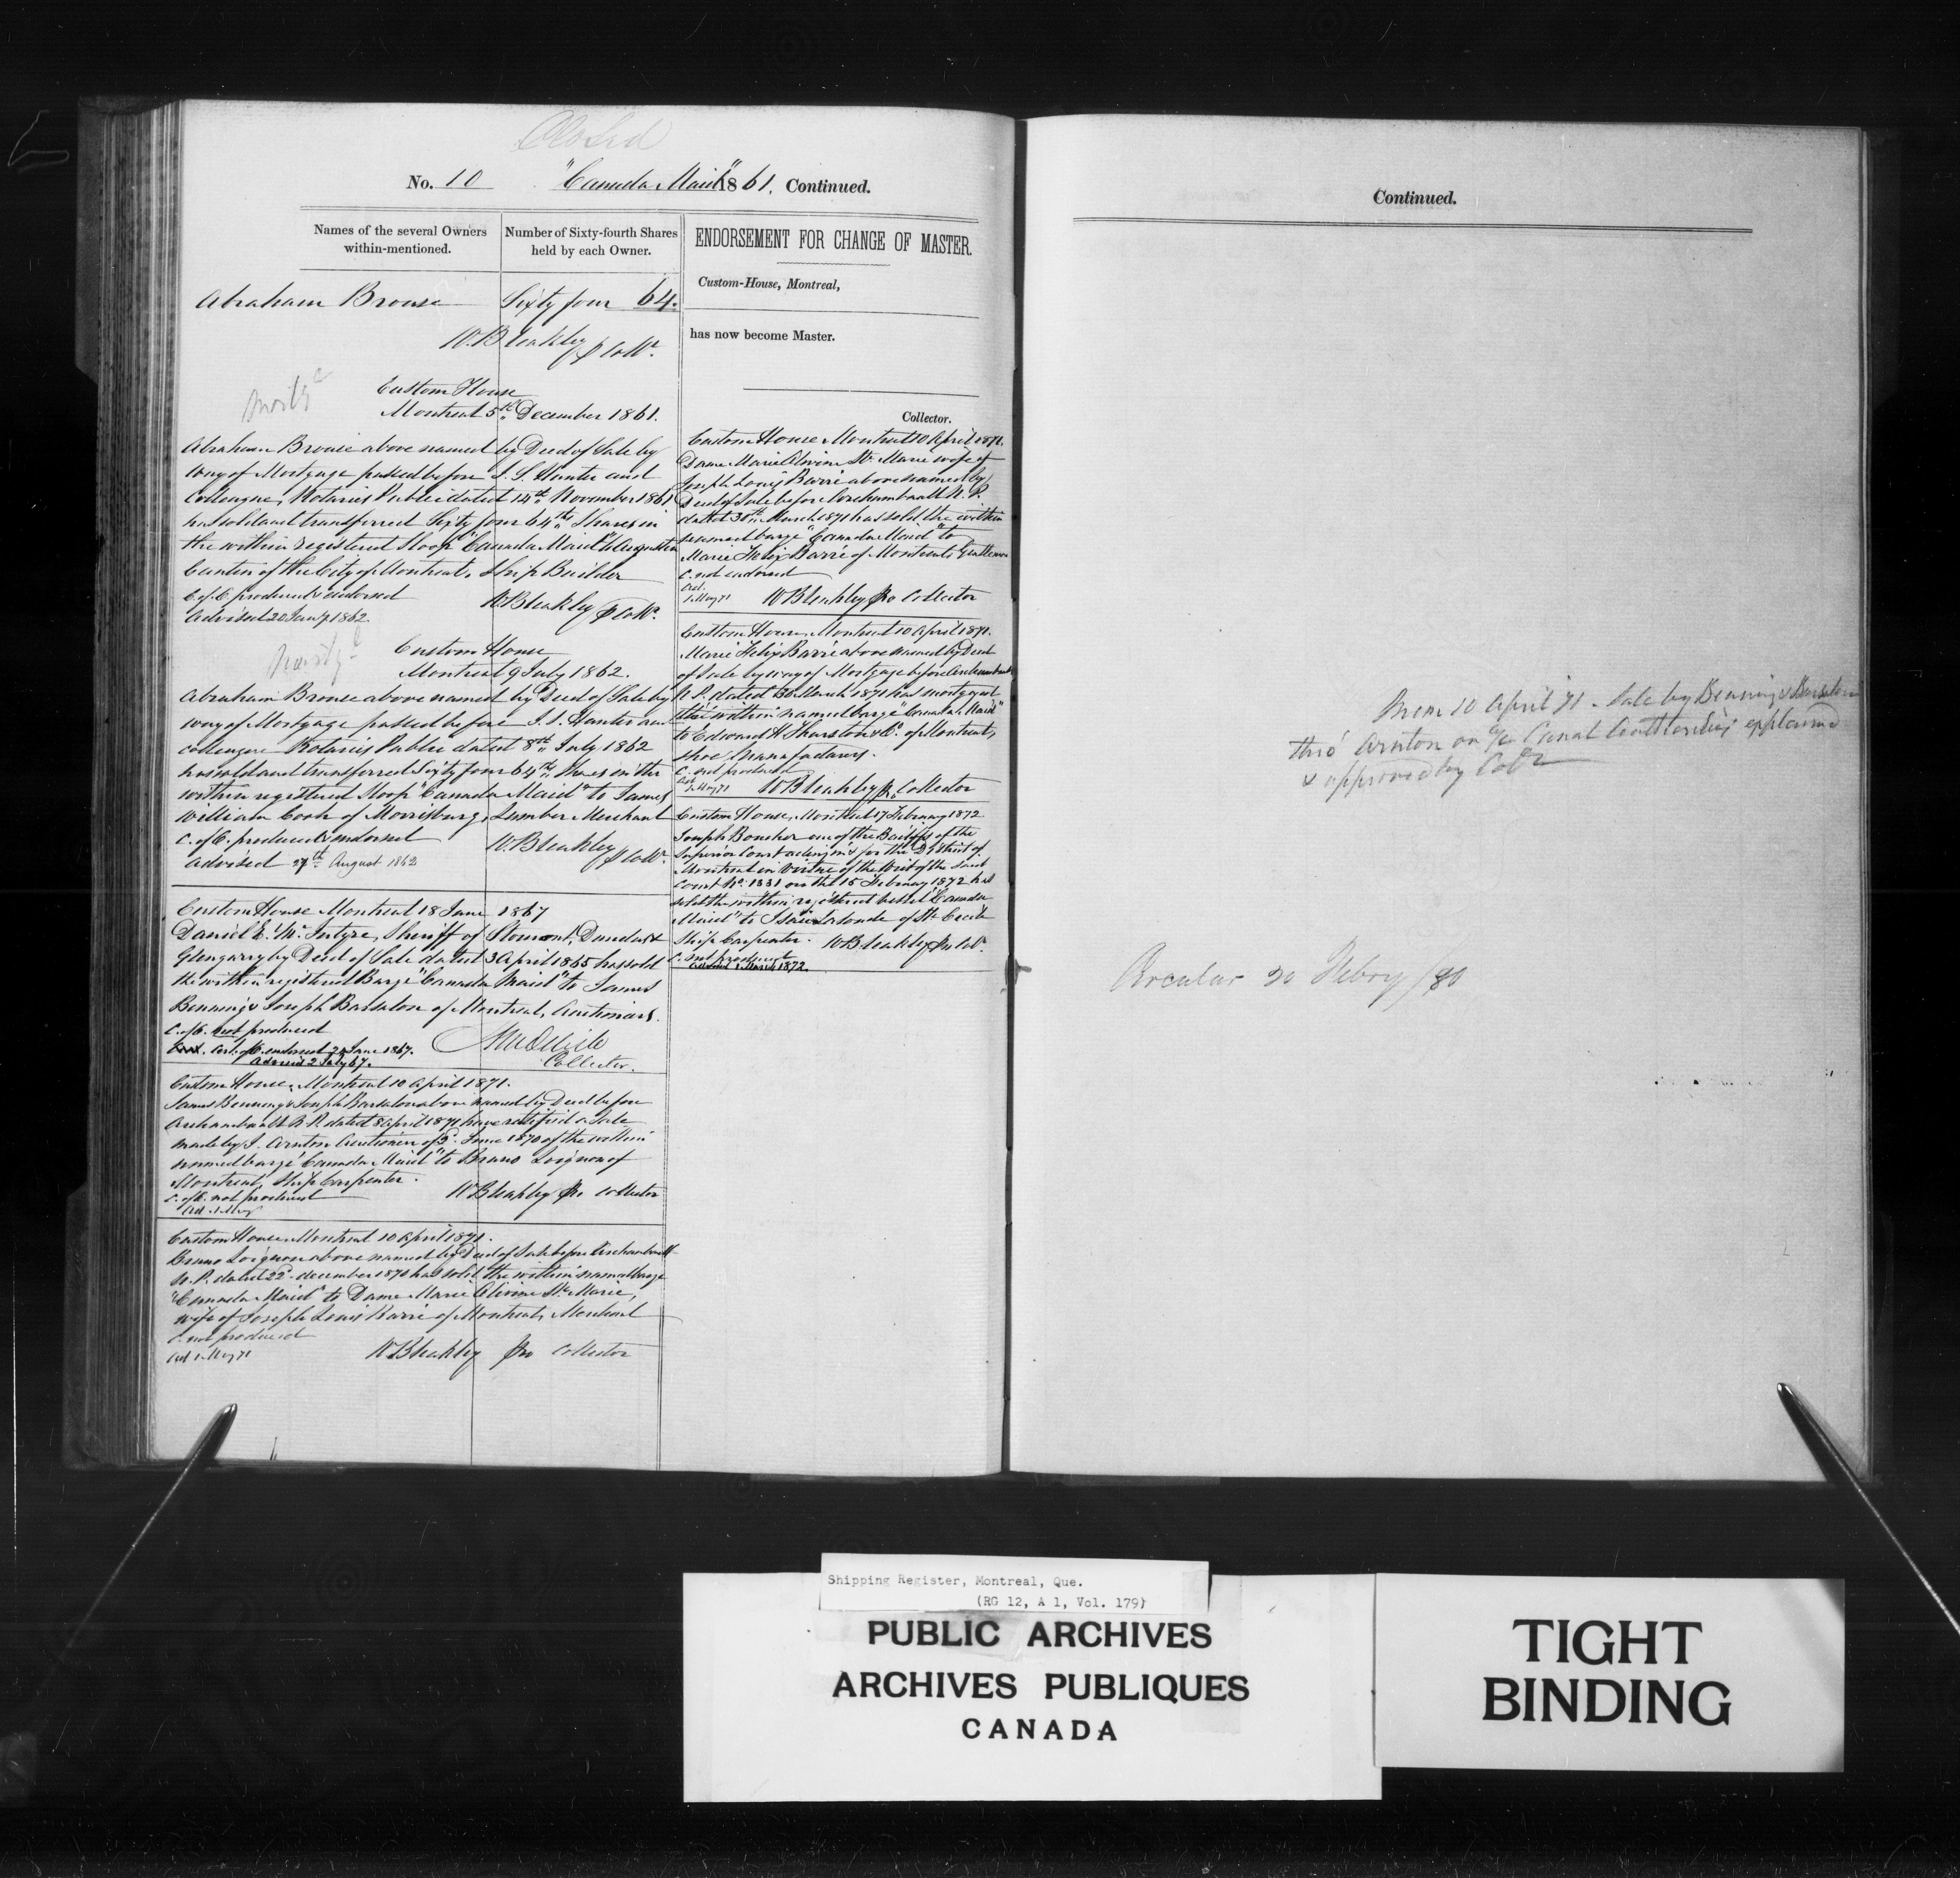 Closed
No. 10 "Canada Maid" 1861. Continued.
Names of the several Owners within-mentioned.
Number of Sixty-fourth Shares held by each Owner.
Abraham Brouse Sixty four 64.
W. Bleakley p Collr.
Mortge
Custom House
Montreal 5th December 1861.
Abraham Brouse above named by Deed of Sale by
way of Mortgage passed before J. S. Hunter and
Colleague, Notaries Public dated 14th November 1861
has sold and transferred Sixty four 64ths Shares in
the within registered Sloop "Canada Maid" to Augustin
Cantin of the City of Montreal, Ship Builder
C. of O. produced & endorsed
W Bleakley p Collr.
Advised 20 Jany 1862.
Mortge
Custom House
Montreal 9 July 1862.
Abraham Brouse above named by Deed of Sale by
way of Mortgage passed before J. S. Hunter and
colleague Notaries Public dated 8th July 1862
has sold and transferred Sixty four 64ths Shares in the
within registered Sloop "Canada Maid" to James
William Cook of Morrisburg, Lumber Merchant
C. of O. produced & endorsed
W. Bleakley p Collr.
Advised 27th August 1862
Custom House Montreal 18 June 1867
Daniel E. McIntyre, Sheriff of Stormont, Dundas &
Glengarry by Deed of Sale dated 3 April 1865 has sold
the within registered Barge "Canada Maid" to James
Benning & Joseph Barsalou of Montreal, Auctioniers.
C. of O. not produced
Cert. of O. endorsed 20 June 1867.
Advised 2 July 67.
Collector.
Custom House, Montreal 10 April 1871.
James Benning & Joseph Barsalou above named by Deed before
Archambault N. P. dated 8 April 1871 have ratified a Sale
made by J. Arnton Auctioneer of 2d. June 1870 of the within
named barge "Canada Maid" to Bruno Loignon of
Montreal, Ship Carpenter.
C. of O. not produced
W Bleakley pro Collector
Ad. 1 May
Custom House Montreal 10 April 1871.
Bruno Loignon above named by Deed of Sale before Archambault
N. P. dated 22d. december 1870 has sold the within named barge
"Canada Maid" to Dame Marie Olivine Ste. Marie,
wife of Joseph Louis Barré of Montreal, Merchant
C. not produced
Ad 1 May 71
W Bleakley pro Collector
ENDORSEMENT FOR CHANGE OF MASTER.
Custom-House, Montreal,
has now become Master.
Collector.
Custom House Montreal 10 April 1871.
Dame Marie Olivine Ste. Marie wife of
Joseph Louis Barré above named by
Deed of Sale before Archambault N. P.
dated 30th March 1871 has sold the within
named barge "Canada Maid" to
Marie Felix Barré of Montreal, Gentleman
C. not endorsed
Ad.
1 May 71
W Bleakley pro Collector
Custom House, Montreal 10 April 1871.
Marie Felix Barré above named by Deed
of Sale by way of Mortgage before Archambault
N. P. dated 30 March 1871 has mortgaged
the within named barge "Canada Maid"
to Edward H. Thurston & Co. of Montreal,
shoe manufacturers.
C. not produced
Ad.
1 May 71
W Bleakley pr Collector
Custom House, Montreal 17 February 1872
Joseph Boucher one of the Bailiffs of the
Superior Court acting in & for the District of
Montreal in virtue of the Writ of the said
Court No. 1331 on the 15 February 1872 has
sold the within registered vessel "Canada
Maid" to Isaïe Lalonde of Ste. Cecile
Ship Carpenter. W Bleakley pro Collr.
C. not produced
Advised 1 March 1872.
Continued.
Mem 10 April 71 - Sale by Benning & Barsalou
thro' Arnton on a/c Canal Authorities explained
& approved by Collr
Circular 20 Febry /80
Shipping Register, Montreal, Que.
(RG 12, A 1, Vol. 179)
PUBLIC ARCHIVES
ARCHIVES PUBLIQUES
CANADA
TIGHT
BINDING